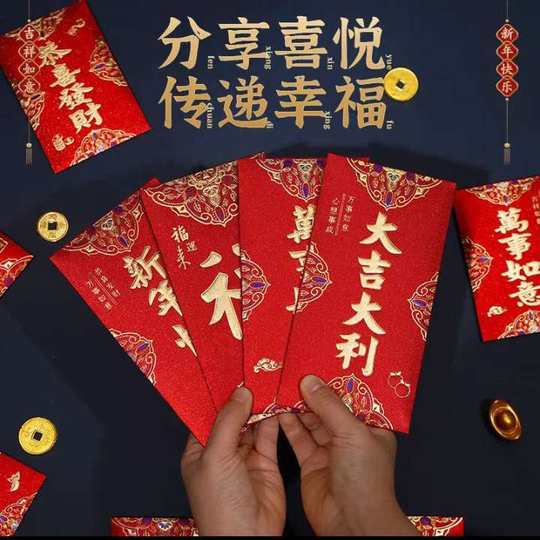 分享喜悦
fen xiang xin yue
传递幸福
chuan di xing fu
吉祥如意
新年快乐
恭喜發財
新年快
福運来
福
萬事
大吉大利
万事如意
心想事成
萬事如意